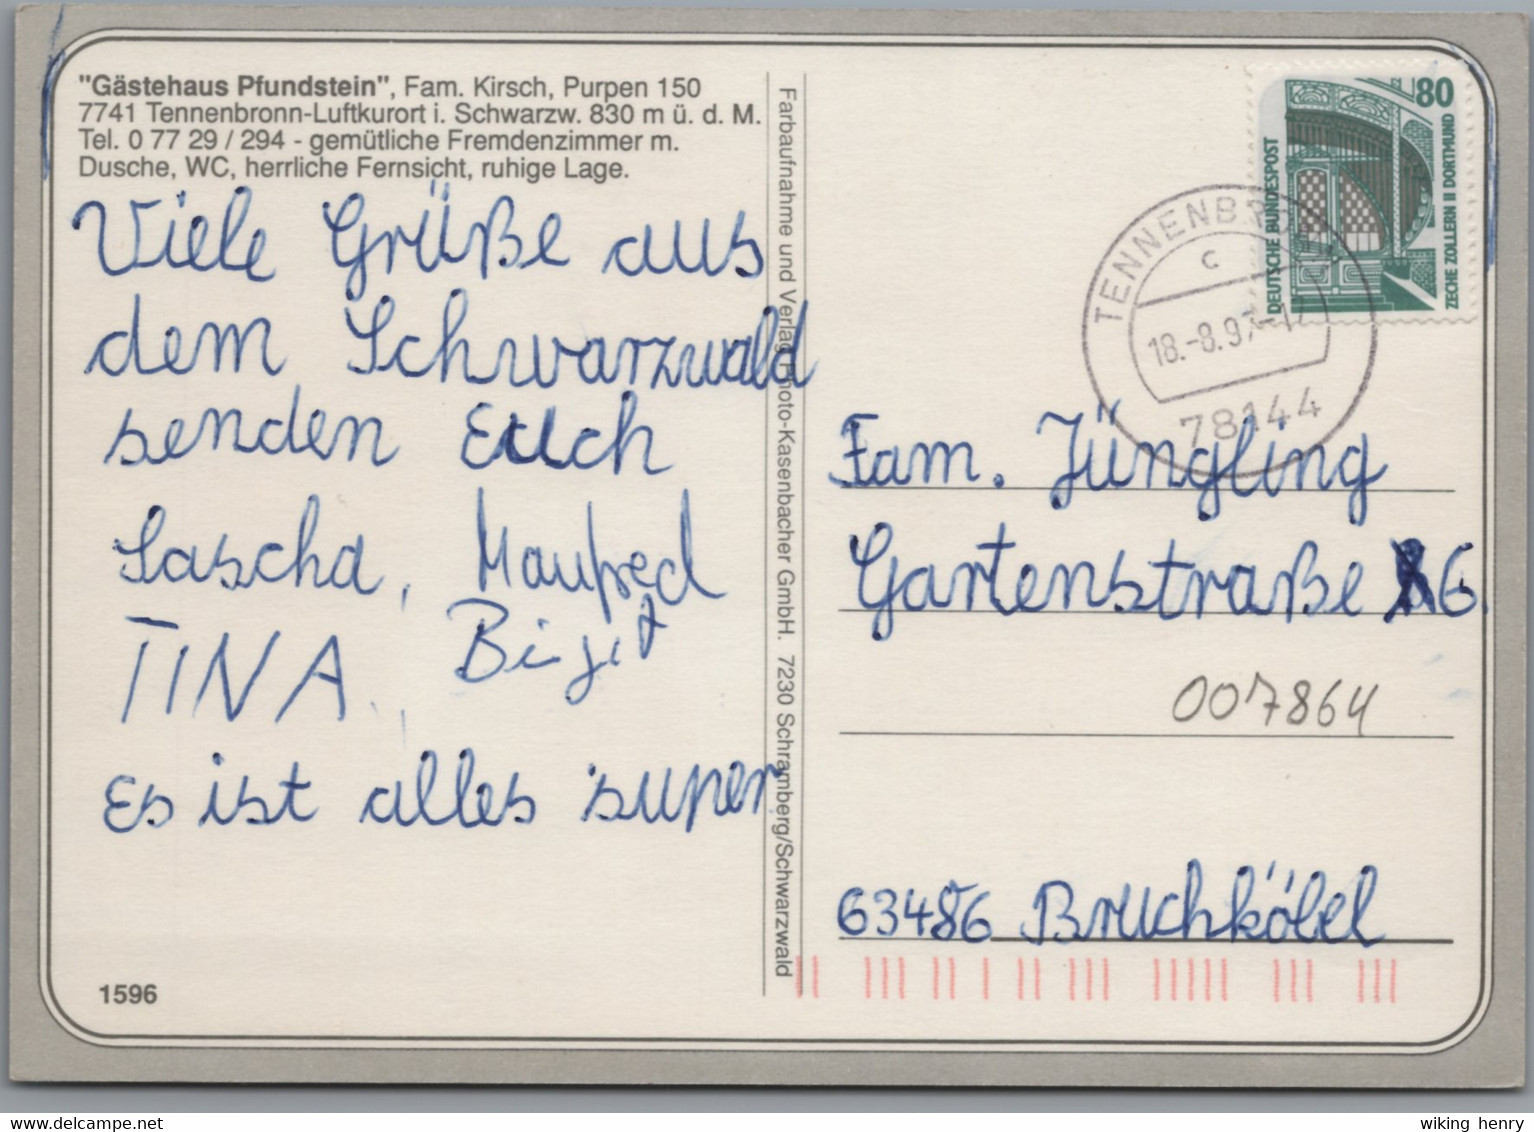 "Gästehaus Pfundstein", Fam. Kirsch, Purpen 150
7741 Tennenbronn-Luftkurort i. Schwarzw. 830 m ü. d. M.
Tel. 0 77 29 / 294 - gemütliche Fremdenzimmer m.
Dusche, WC, herrliche Fernsicht, ruhige Lage.
Viele Grüße aus
dem Schwarzwald
senden Euch
Sascha, Manfred
TINA, Birgit
Es ist alles super
1596
Farbaufnahme und Verlag Photo-Kasenbacher GmbH. 7230 Schramberg/Schwarzwald
80
DEUTSCHE BUNDESPOST
ZECHE ZOLLERN II DORTMUND
TENNENBRONN
c
18.-8.97-17
78144
Fam. Jüngling
Gartenstraße 6
007864
63486 Bruchköbel
www.delcampe.net
wiking henry